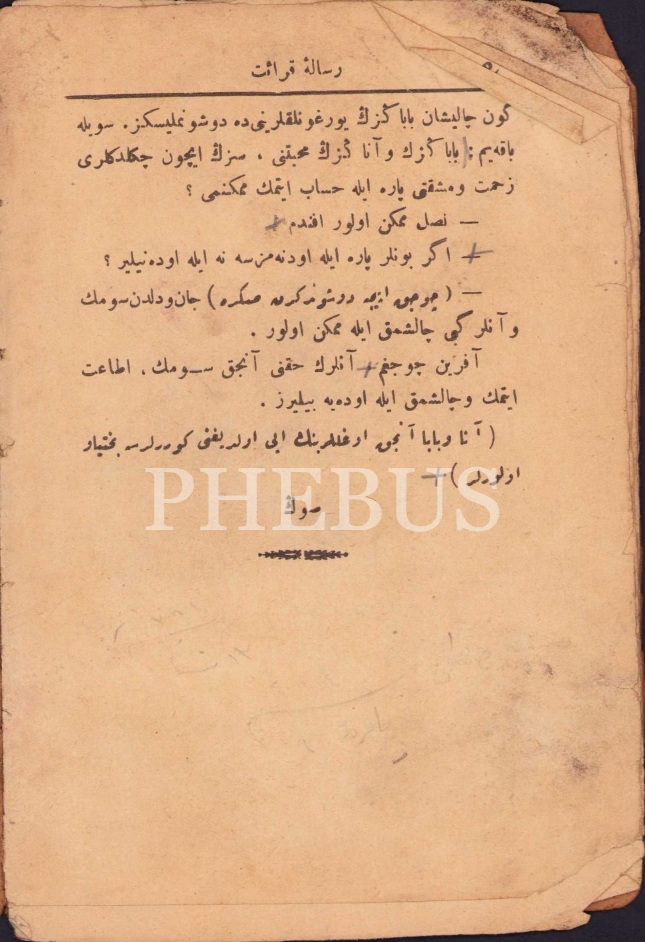 رسالۀ قرائت
كون چاليشان باباكزڭ يورغونلقلرينى ده دوشونمليسكز. سويله
باقه‌يم: باباكزڭ و آناكزڭ محبتنى ، سزڭ ايچون چكدكلرى
زحمت و مشقتى پاره ايله حساب ايتمك ممكنمى ؟
— نصل ممكن اولور افندم
اكر بونلر پاره ايله اودنه‌مزسه نه ايله اوده‌نيلير ؟
— (چوجق ايجه دوشوندكدن صكره) جان و دلدن سومك
و آنلر كبى چالشمق ايله ممكن اولور .
آفرين چوجغم آنلرڭ حقنى آنجق سومك، اطاعت
ايتمك و چالشمق ايله اوده‌يه بيليرز .
(آنا و بابا آنجق اوغللرينڭ ايى اولديغنى كوررلرسه بختيار
اولورلر)
صوڭ
PHEBUS